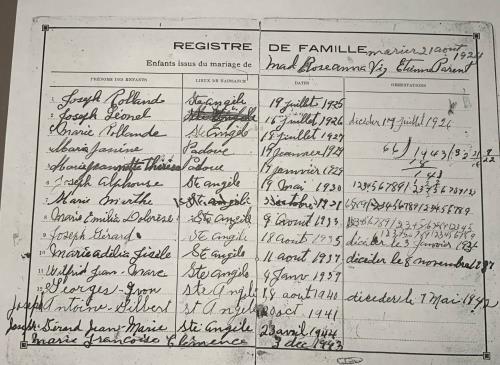 REGISTRE DE FAMILLE marier 21 août 1924
Enfants issus du mariage de Mad Roseanna Viz Etienne Parent
PRÉNOMS DES ENFANTS LIEUX DE NAISSANCE DATES OBSERVATIONS
1 Joseph Rollande Ste Angèle 19 juillet 1925
2 Joseph Léonel 16 juillet 1926 décéder 17 juillet 1926
3 Marie Yollande Ste Angèle 18 juillet 1927
4 Maria Janine Padoue 19 janvier 1929
5 Marie Jeannette Thérèse Padoue 19 janvier 1929
6 Joseph Alphonse Ste angèle 19 mai 1930
7 Marie Merthe Ste angèle 3 octobre 1931
8 Marie Emilia Dolorèse Ste Angèle 9 Aout 1933
9 Joseph Gérard Ste Angèle 18 aout 1935 décéder le 3 janvier
10 Marie adélia Gisèle Ste Angèle 11 aout 1937 décéder le 8 novembre
11 Wilfrid Jean-Marc Ste Angèle 9 Janv 1939
12 Georges-Yvon Ste Angèle 18 aout 1940 décéder le 7 Mai
Joseph Antoine-Gilbert St Angèle 20 oct 1941
Joseph-Gérard Jean-Marie Ste Angèle 23 avril 1944
Marie Françoise Clémence 3 dec 1943